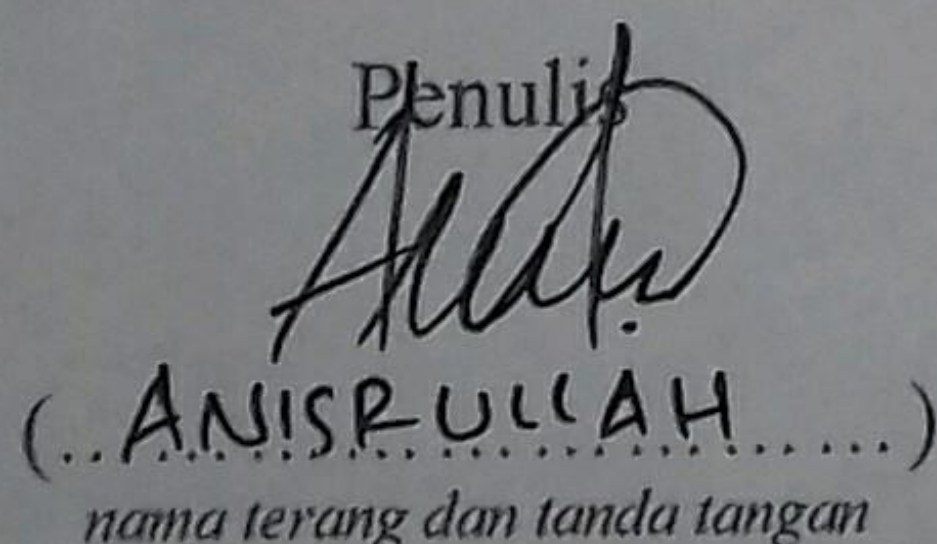 Penulis
(..ANISRULLAH......)
nama terang dan tanda tangan